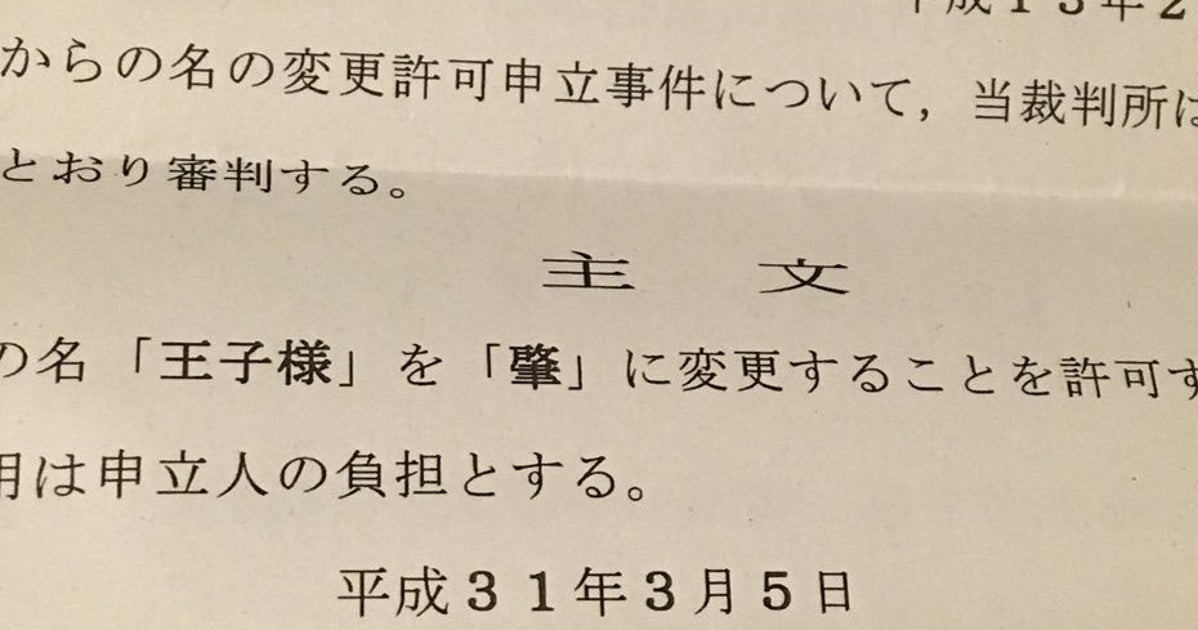 平成13年2
からの名の変更許可申立事件について，当裁判所は
とおり審判する。
主　文
の名「王子様」を「肇」に変更することを許可す
用は申立人の負担とする。
平成３１年３月５日